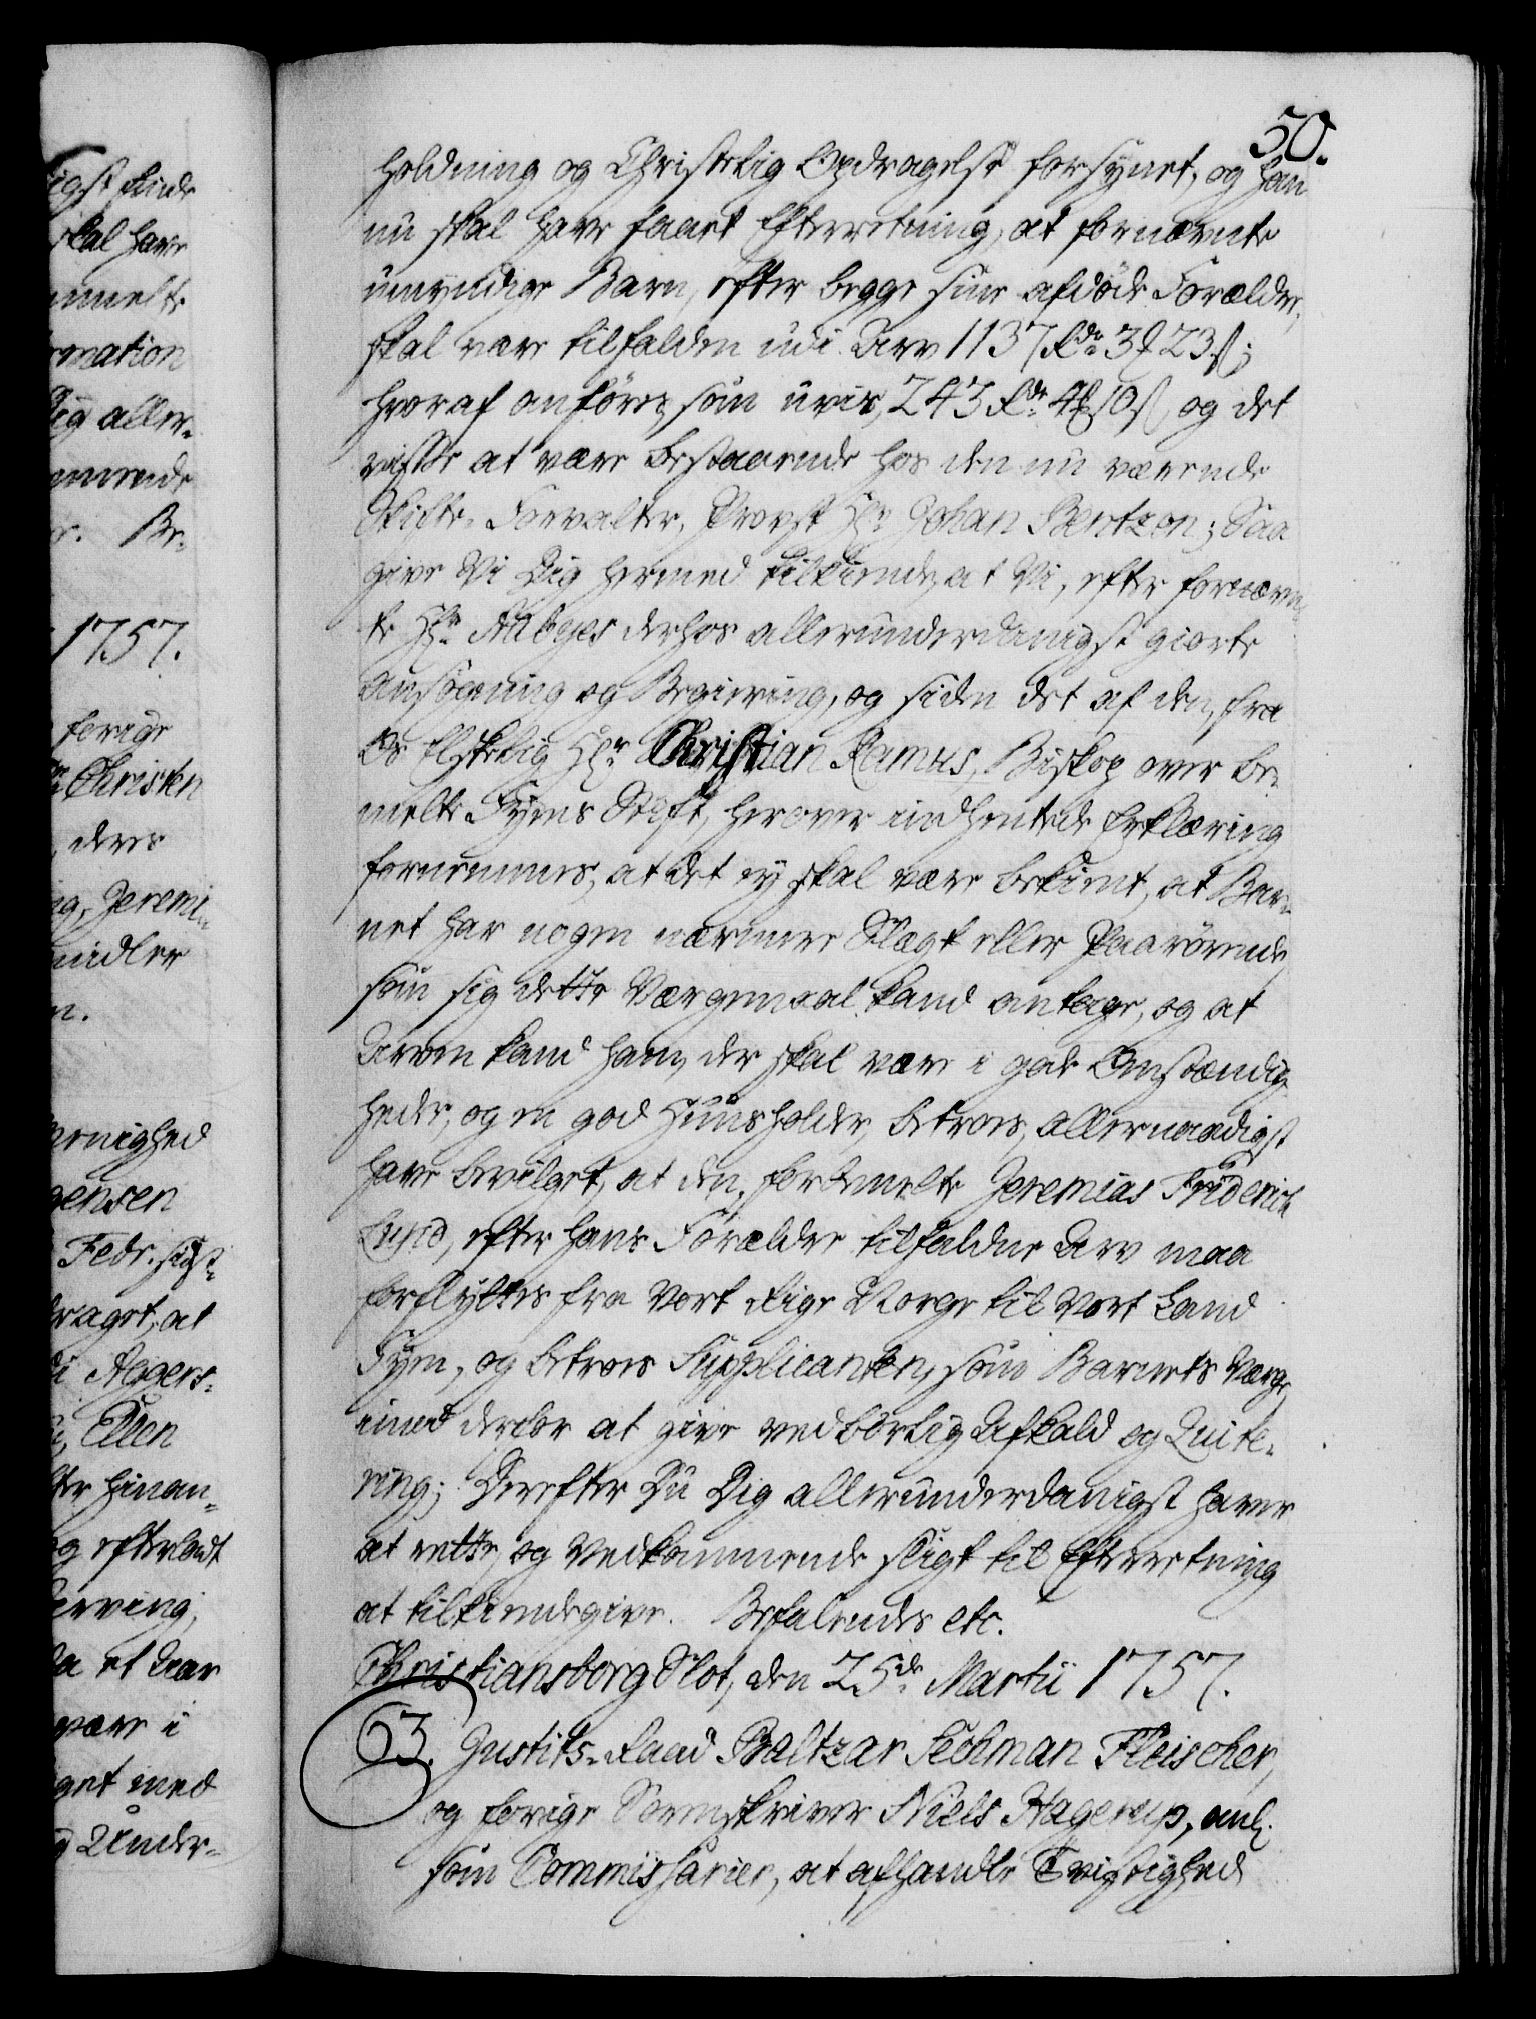 50.
holdning og Christelig Opdragelse forsynet, og han
nu skal have faaet Efterretning, at fornævnte
umyndige Barn, efter begge sine afdøde Forældre,
skal være tilfalden udi Arv 1137 Rdr 3 ₰ 23 ß;
hvoraf anføres, som uvis, 243 Rdr 4 ₰ 10 ß, og det
visse at være bestaaende hos den nu værende
Skifte-Forvalter, Provst Hr Johan Bentzon; Saa
give Vi Dig hermed tilkiende, at Vi, efter fornævn-
te Hr Aabyes derhos allerunderdanigst giorte
Ansøgning og Begiering, og siden det af den, fra
Os Elskelig Hr Christian Ramus, Biskop over be-
melte Fyens Stift, herover indhentede Erklæring
fornemmes, at det ey skal være bekient, at Bar-
net har nogen nærmere Slægt eller Paarørende,
som sig dette Værgemaal kand antage, og at
Arven kand ham, der skal være i gode Omstændig-
heder, og en god Huusholder, betroes, allernaadigst
have bevilget, at den, forbemelte Jeremias Friderich
Lund, efter hans Forældre tilfaldne Arv maa
forflyttes fra Vort Rige Norge til Vort Land
Fyen, og betroes Supplicanten, som Barnets Værge,
imod derfor at give vedbørlig Afkald og Qvite-
ring; Derefter Du Dig allerunderdanigst haver
at rette, og Vedkommende sligt til Efterretning
at tilkiendegive. Befalendes etc.
Christiansborg Slot, den 25de Martii 1757.
63. Justits-Raad Baltzar Sechman Fleischer,
og forige Sorenskriver Niels Hagerup, anl.
som Commissarier, at afhandle Tvistighed
igst kiende
skal have
ummelte
rmation
Dig aller-
mmende
Be-
1757.
forige
Christen
deres
Jeremi-
midler
n.
ernighed
gensen
Fedr. sigt-
draget, at
i Aggers-
Ellen
hinan-
og efterladt
Arving,
et Aar
være i
get med
Under-